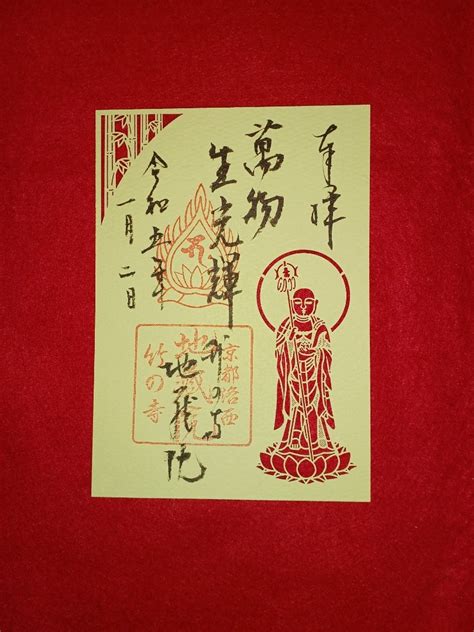 奉拝
萬物
生光輝
竹の寺
地蔵院
令和五年
一月二日
京都洛西
地蔵院
竹の寺